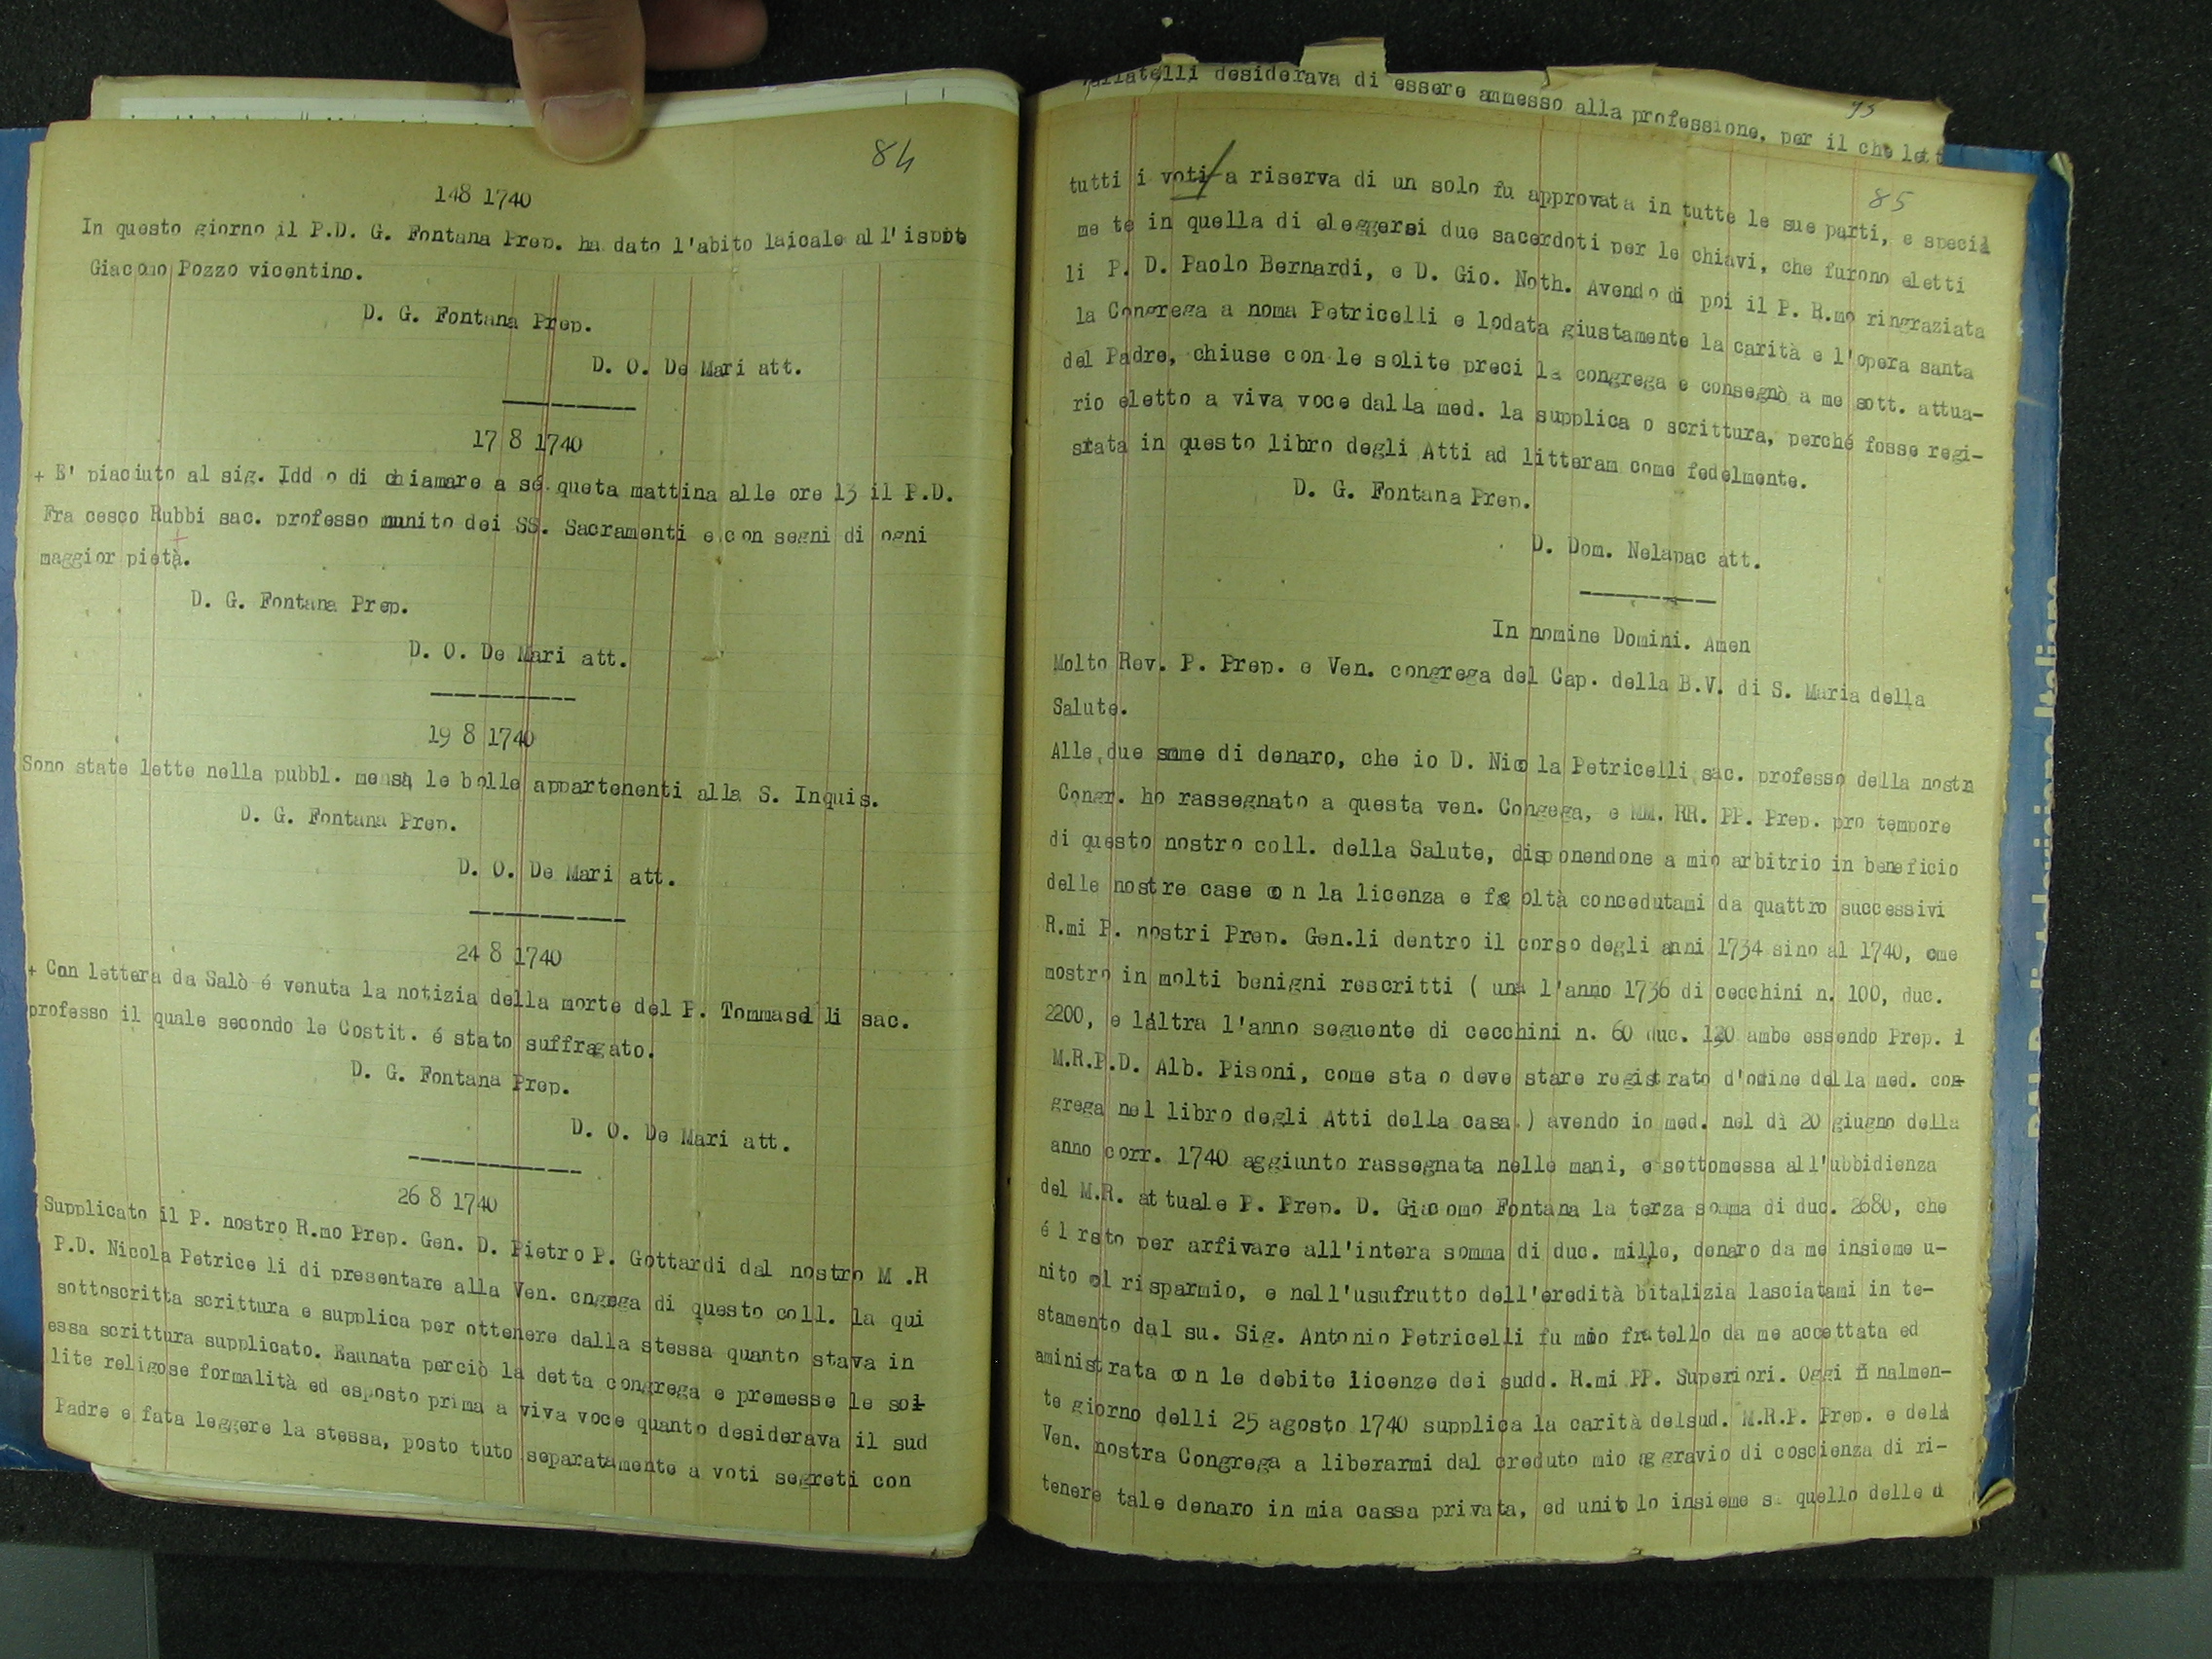 84
148 1740
In questo giorno il P.D. G. Fontana Prep. ha dato l'abito laicale all'ispite
Giacomo Pozzo vicentino.
D. G. Fontana Prep.
D. O. De Mari att.
17 8 1740
+ E' piaciuto al sig. Idd o di chiamare a sé queta mattina alle ore 13 il P.D.
Fra cesco Rubbi sac. professo munito dei SS. Sacramenti e con segni di ogni
maggior pietà.
D. G. Fontana Prep.
D. O. De Mari att.
19 8 1740
Sono state lette nella pubbl. mensa le bolle appartenenti alla S. Inquis.
D. G. Fontana Prep.
D. O. De Mari att.
24 8 1740
+ Con lettera da Salò é venuta la notizia della morte del P. Tommaseli sac.
professo il quale secondo le Costit. é stato suffragato.
D. G. Fontana Prep.
D. O. De Mari att.
26 8 1740
Supplicato il P. nostro R.mo Prep. Gen. D. Pietro P. Gottardi dal nostro M .R
P.D. Nicola Petrice li di presentare alla Ven. cngrega di questo coll. la qui
sottoscritta scrittura e supplica per ottenere dalla stessa quanto stava in
essa scrittura supplicato. Raunata perciò la detta congrega e premesse le sol-
lite religose formalità ed esposto prima a viva voce quanto desiderava il sud
Padre e fata leggere la stessa, posto tuto separatamente a voti segreti con
desiderava di essere ammesso alla professione, per il che lett
95
85
tutti i voti/a riserva di un solo fu approvata in tutte le sue parti, e special
me te in quella di eleggersi due sacerdoti per le chiavi, che furono eletti
li P. D. Paolo Bernardi, e D. Gio. Noth. Avendo di poi il P. R.mo ringraziata
la Congrega a noma Petricelli e lodata giustamente la carità e l'opera santa
del Padre, chiuse con le solite preci la congrega e consegnò a me sott. attua-
rio eletto a viva voce dalla med. la supplica o scrittura, perché fosse regi-
strata in questo libro degli Atti ad litteram come fedelmente.
D. G. Fontana Prep.
D. Dom. Nelapac att.
In nomine Domini. Amen
Molto Rev. P. Prep. e Ven. congrega del Cap. della B.V. di S. Maria della
Salute.
Alle due smme di denaro, che io D. Nico la Petricelli sac. professo della nostra
Congr. ho rassegnato a questa ven. Congega, e MM. RR. PP. Prep. pro tempore
di questo nostro coll. della Salute, disponendone a mio arbitrio in beneficio
delle nostre case co n la licenza e fac oltà concedutami da quattro successivi
R.mi P. nostri Prep. Gen.li dentro il corso degli anni 1734 sino al 1740, cme
mostro in molti benigni rescritti ( una l'anno 1736 di cecchini n. 100, duc.
2200, e l'altra l'anno seguente di cecchini n. 60 duc. 1320 ambe essendo Prep. i
M.R.P.D. Alb. Pisoni, come sta o deve stare registrato d'odine della med. con-
grega nel libro degli Atti della casa ) avendo io med. nel dì 20 giugno della
anno corr. 1740 aggiunto rassegnata nelle mani, e sottomessa all'ubbidienza
del M.R. attuale P. Prep. D. Giacomo Fontana la terza somma di duc. 2680, che
é l rsto per arfivare all'intera somma di duc. mille, denaro da me insieme u-
nito ol risparmio, e nell'usufrutto dell'eredità bitalizia lasciatami in te-
stamento dal su. Sig. Antonio Petricelli fu mio fratello da me accettata ed
aministrata co n le debite licenze dei sudd. R.mi PP. Superiori. Oggi finalmen-
te giorno delli 25 agosto 1740 supplica la carità delsud. M.R.P. Prep. e dela
Ven. nostra Congrega a liberarmi dal creduto mio aggravio di coscienza di ri-
tenere tale denaro in mia cassa privata, ed unito lo insieme a quello delle d